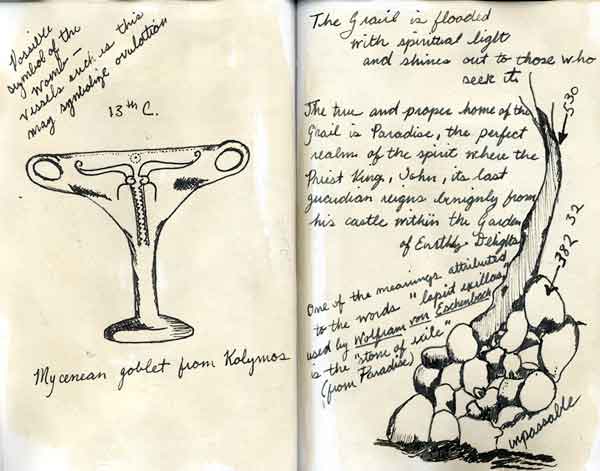 Possible
symbol of the
womb –
vessels such as this
may symbolize ovulation
13th C.
Mycenean goblet from Kalymos
The Grail is flooded
with spiritual light
and shines out to those who
seek it
The true and proper home of the
Grail is Paradise, the perfect
realm of the spirit where the
Priest King, John, its last
guardian reigns benignly from
his castle within the Garden
of Earthly Delights
One of the meanings attributed
to the words "lapsit exillas"
used by Wolfram von Eschenbach
is the "stone of exile"
(from Paradise)
530
382 32
impassable